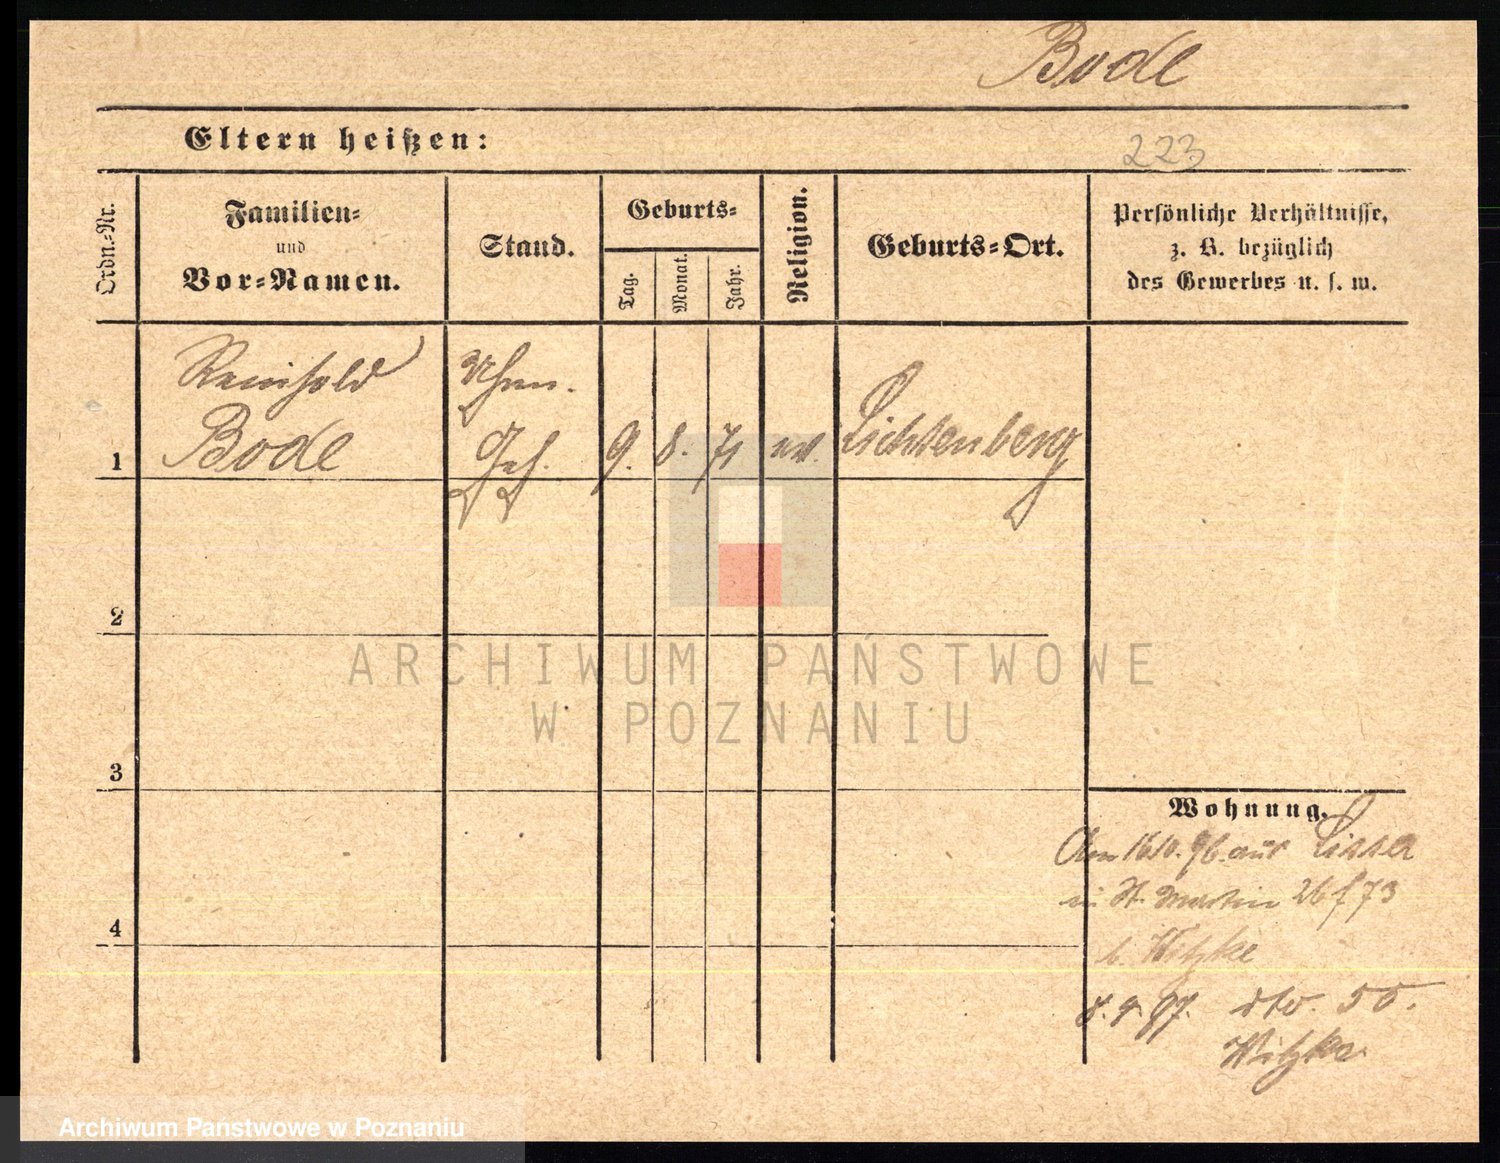 Bode
Eltern heißen:
223
Ordn.-Nr.
Familien-
und
Vor-Namen.
Stand.
Geburts-
Tag.
Monat.
Jahr.
Religion.
Geburts-Ort.
Persönliche Verhältnisse,
z. B. bezüglich
des Gewerbes u. s. w.
Reinhold
Bode
Uhrm.
Geh.
1
9.
8.
71
ev.
Lichtenberg
2
3
4
Wohnung.
Am 16/10. 96. aus Lissa
in St. Martin 26 f 73
b. Witzke
8. 9. 97. dto. 50.
Witzke
ARCHIWUM PAŃSTWOWE
W POZNANIU
Archiwum Państwowe w Poznaniu